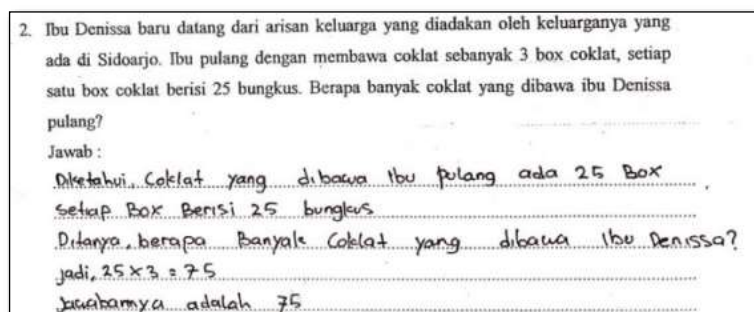 2. Ibu Denissa baru datang dari arisan keluarga yang diadakan oleh keluarganya yang
ada di Sidoarjo. Ibu pulang dengan membawa coklat sebanyak 3 box coklat, setiap
satu box coklat berisi 25 bungkus. Berapa banyak coklat yang dibawa ibu Denissa
pulang?
Jawab :
Diketahui, Coklat yang dibawa Ibu pulang ada 25 Box
Setiap Box Berisi 25 bungkus
Ditanya, berapa Banyak Coklat yang dibawa Ibu Denissa?
jadi, 25 x 3 = 75
Jawabannya adalah 75